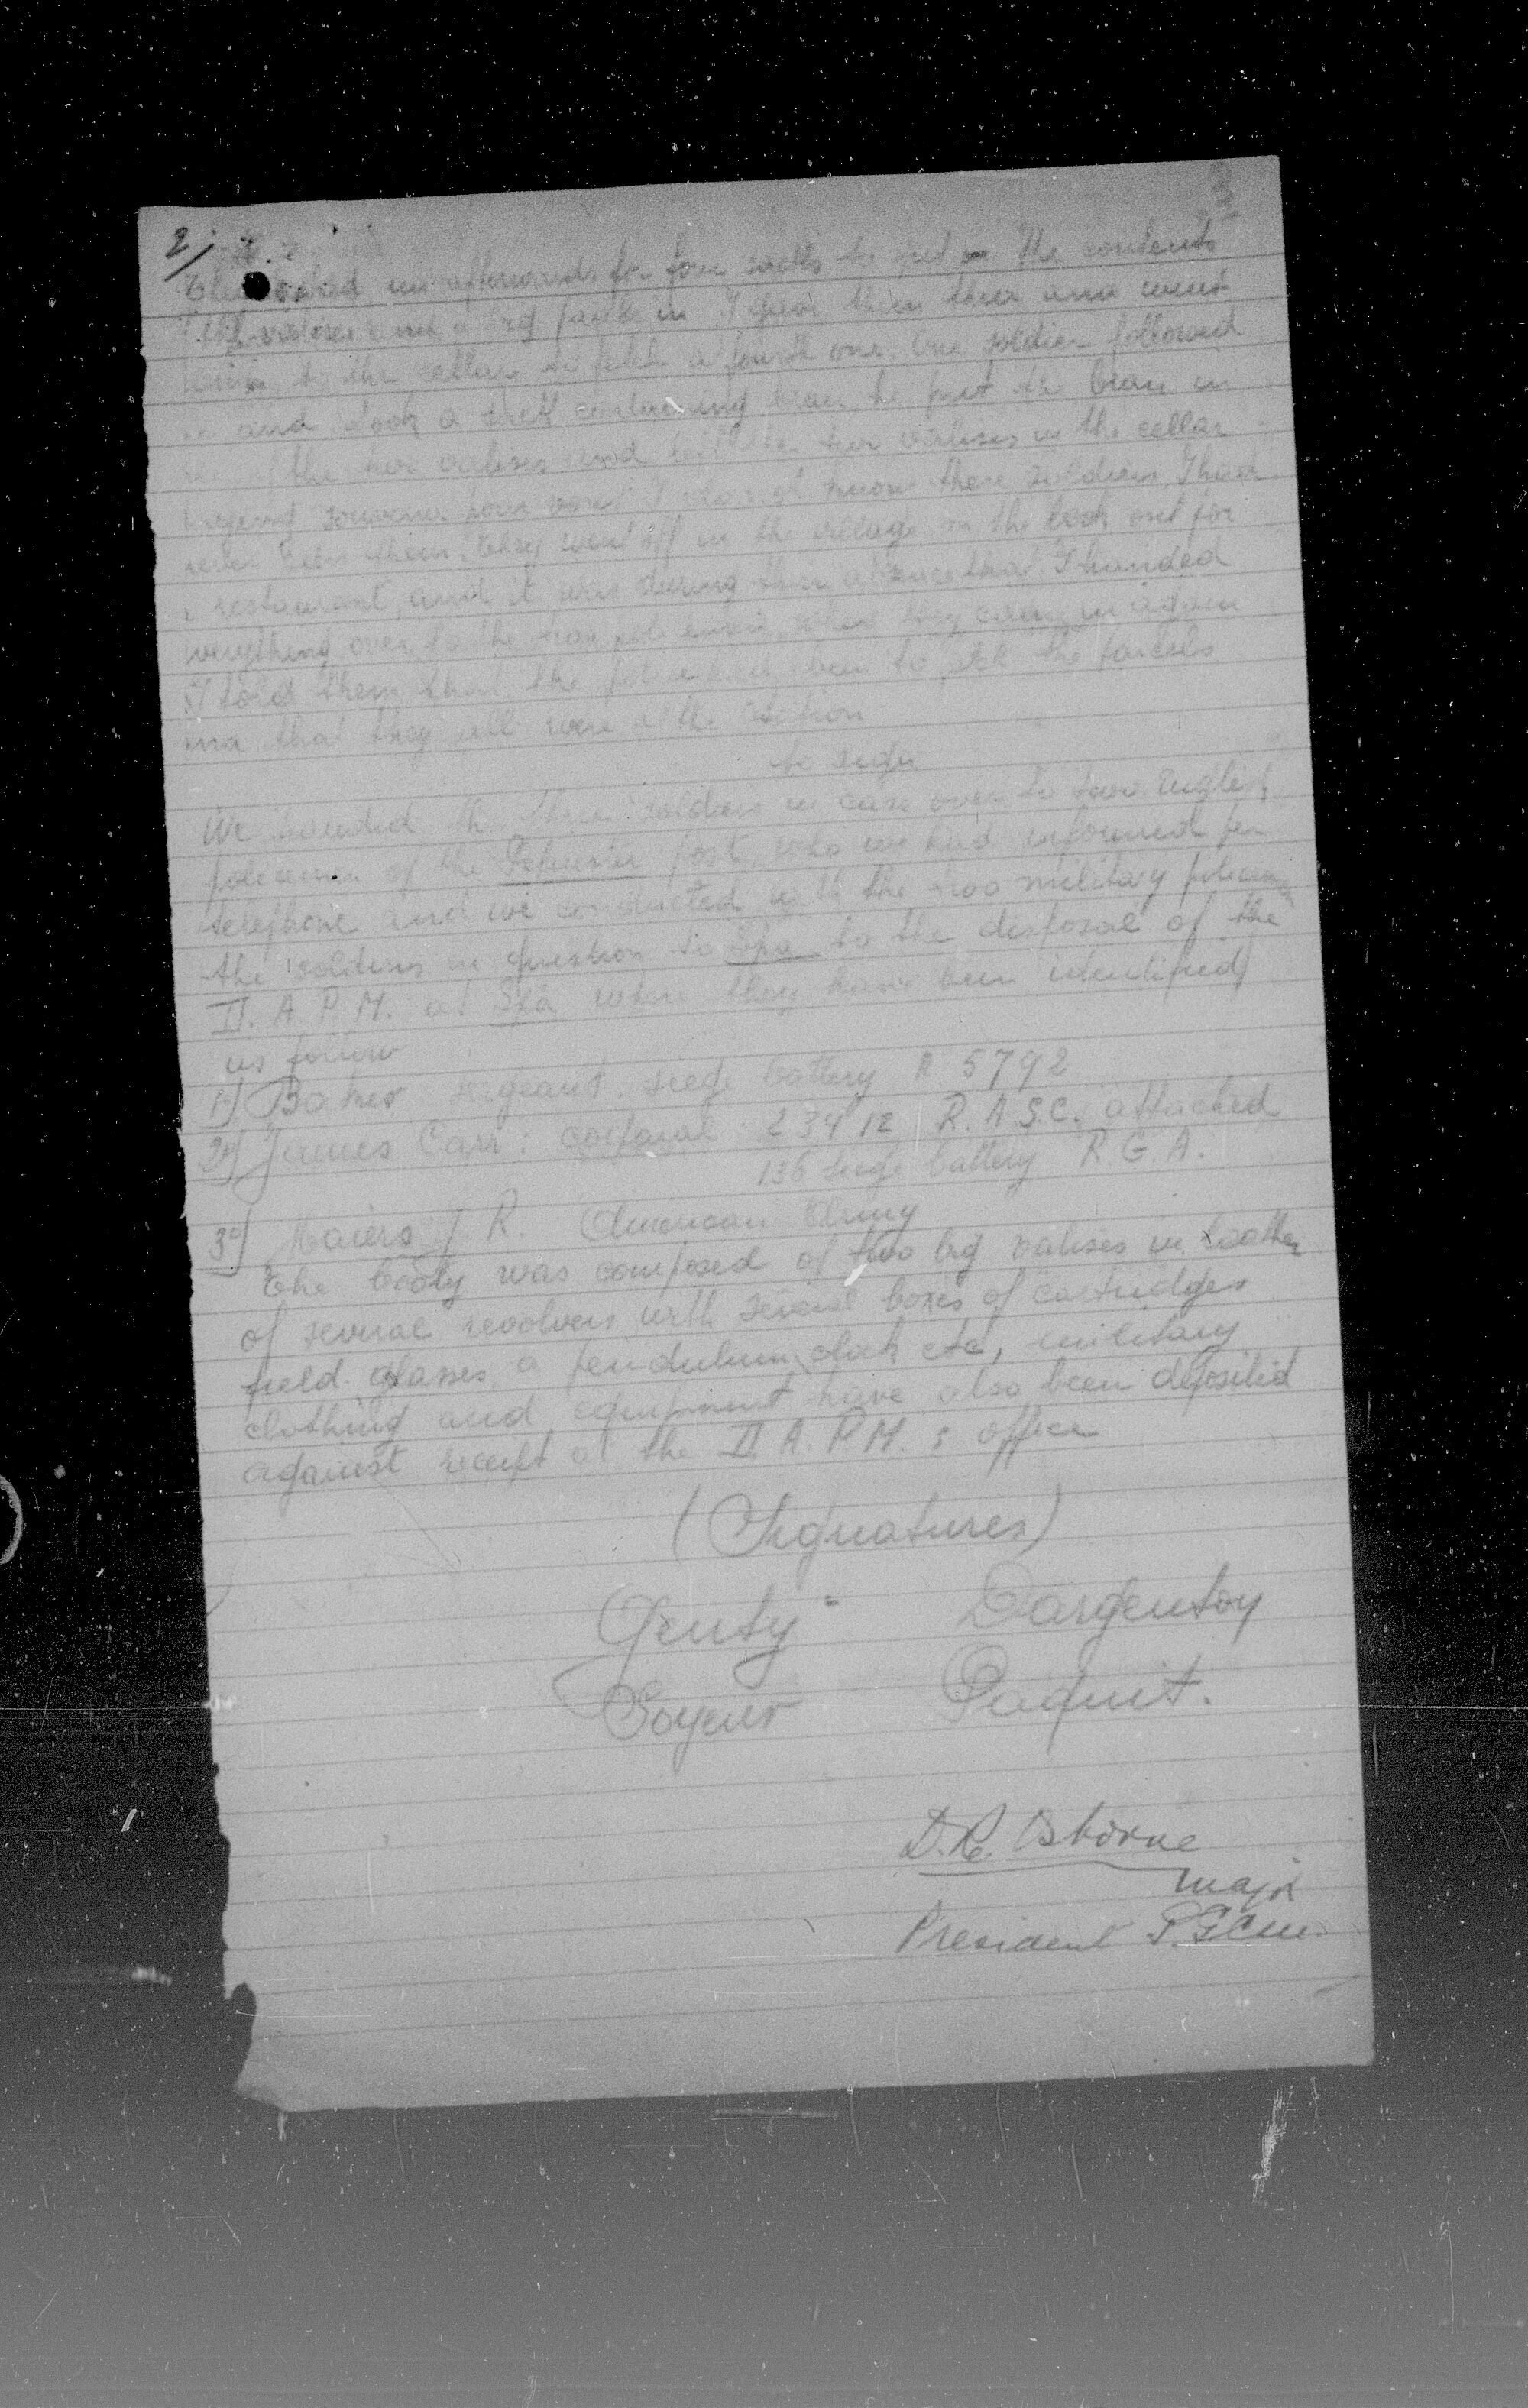 2/
They asked me afterwards for four sacks to put in the contents
of the valises and a big parcel in I gave them three and went
to the cellar to fetch a fourth one. One soldier followed
me and took a sack containing bran, he put the bran in
the two valises and left the two valises in the cellar
saying souvenir pour vous I do not know these soldiers, I had
never seen them. They went off in the village on the look out for
a restaurant, and it was during their absence that I handed
everything over to the two policemen, when they came in again
I told them that the police had been to fetch the parcels
and that they all were at the station
We handed the three soldiers in case over to two English
policemen of the Pepinster post, who we had informed per
telephone and we conducted with the two military policemen
the soldiers in question to Spa to the disposal of the
II. A. P. M. at Spa where they have been identified
as follow
1°) Baker sergeant. siege battery n 5792
2°) James Carr: corporal 23412 R.A.S.C. attached
136 siege battery R.G.A.
3°) Maiers J. R. American Army
The booty was composed of two big valises in leather
of several revolvers with several boxes of cartridges
field glasses, a pendulum clock etc, military
clothing and equipment have also been deposited
against receipt at the II A. P. M. s office
(Signatures)
Genty Dargentoy
Soyeur Paquit.
D.R. Osborne
Major
President F.GCM.